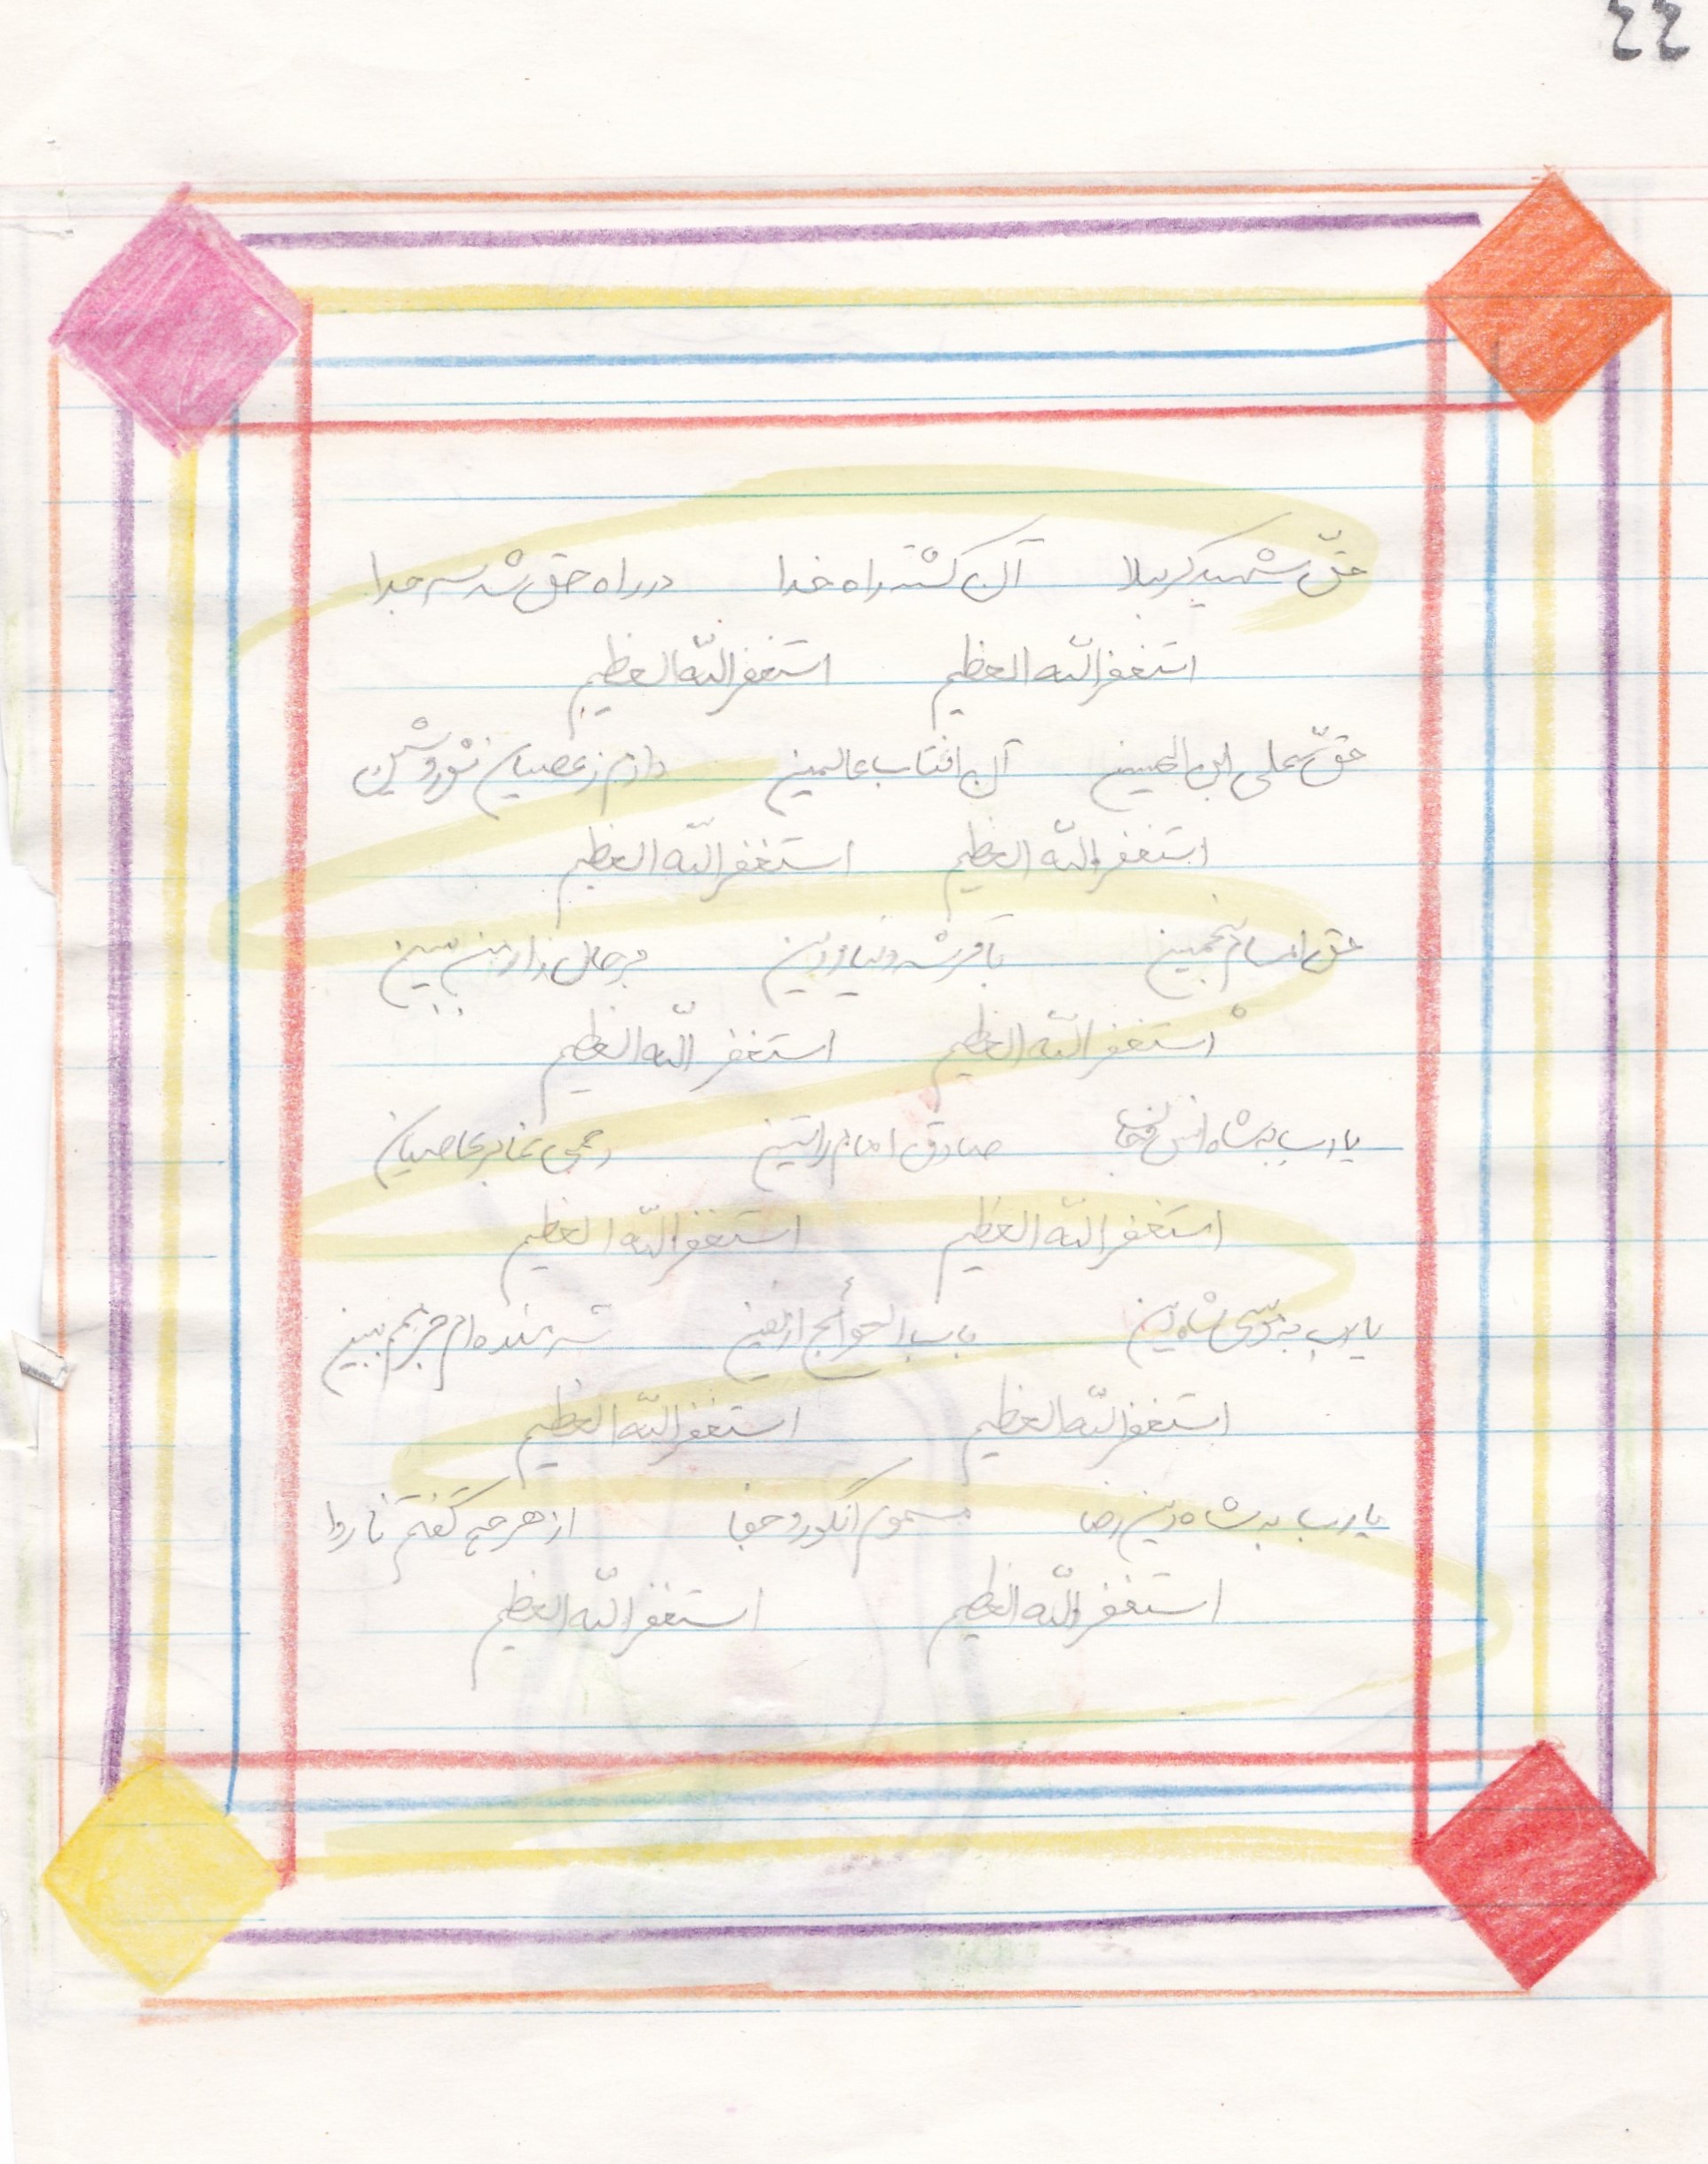 ٤٤
حقّ شهید کربلا آن کشته راه خدا در راه حق شد سر جدا
استغفر اللّه العظیم استغفر اللّه العظیم
حقّ علی ابن الحسین آن افتاب عالمین دارم ز عصیان شور و شین
استغفر اللّه العظیم استغفر اللّه العظیم
حق امام پنجمین باقر شه دنیا و دین بر حال زار من ببین
استغفر اللّه العظیم استغفر اللّه العظیم
یا رب به شاه انس صادق امام راستین رحمی نما بر عاصیان
استغفر اللّه العظیم استغفر اللّه العظیم
یا رب به موسی شاه دین باب الحوائج شرمنده ام جرمم ببین
استغفر اللّه العظیم استغفر اللّه العظیم
یا رب به شاه دین رضا مسموم انگور و جفا از هر چه گفتم ناروا
استغفر اللّه العظیم استغفر اللّه العظیم